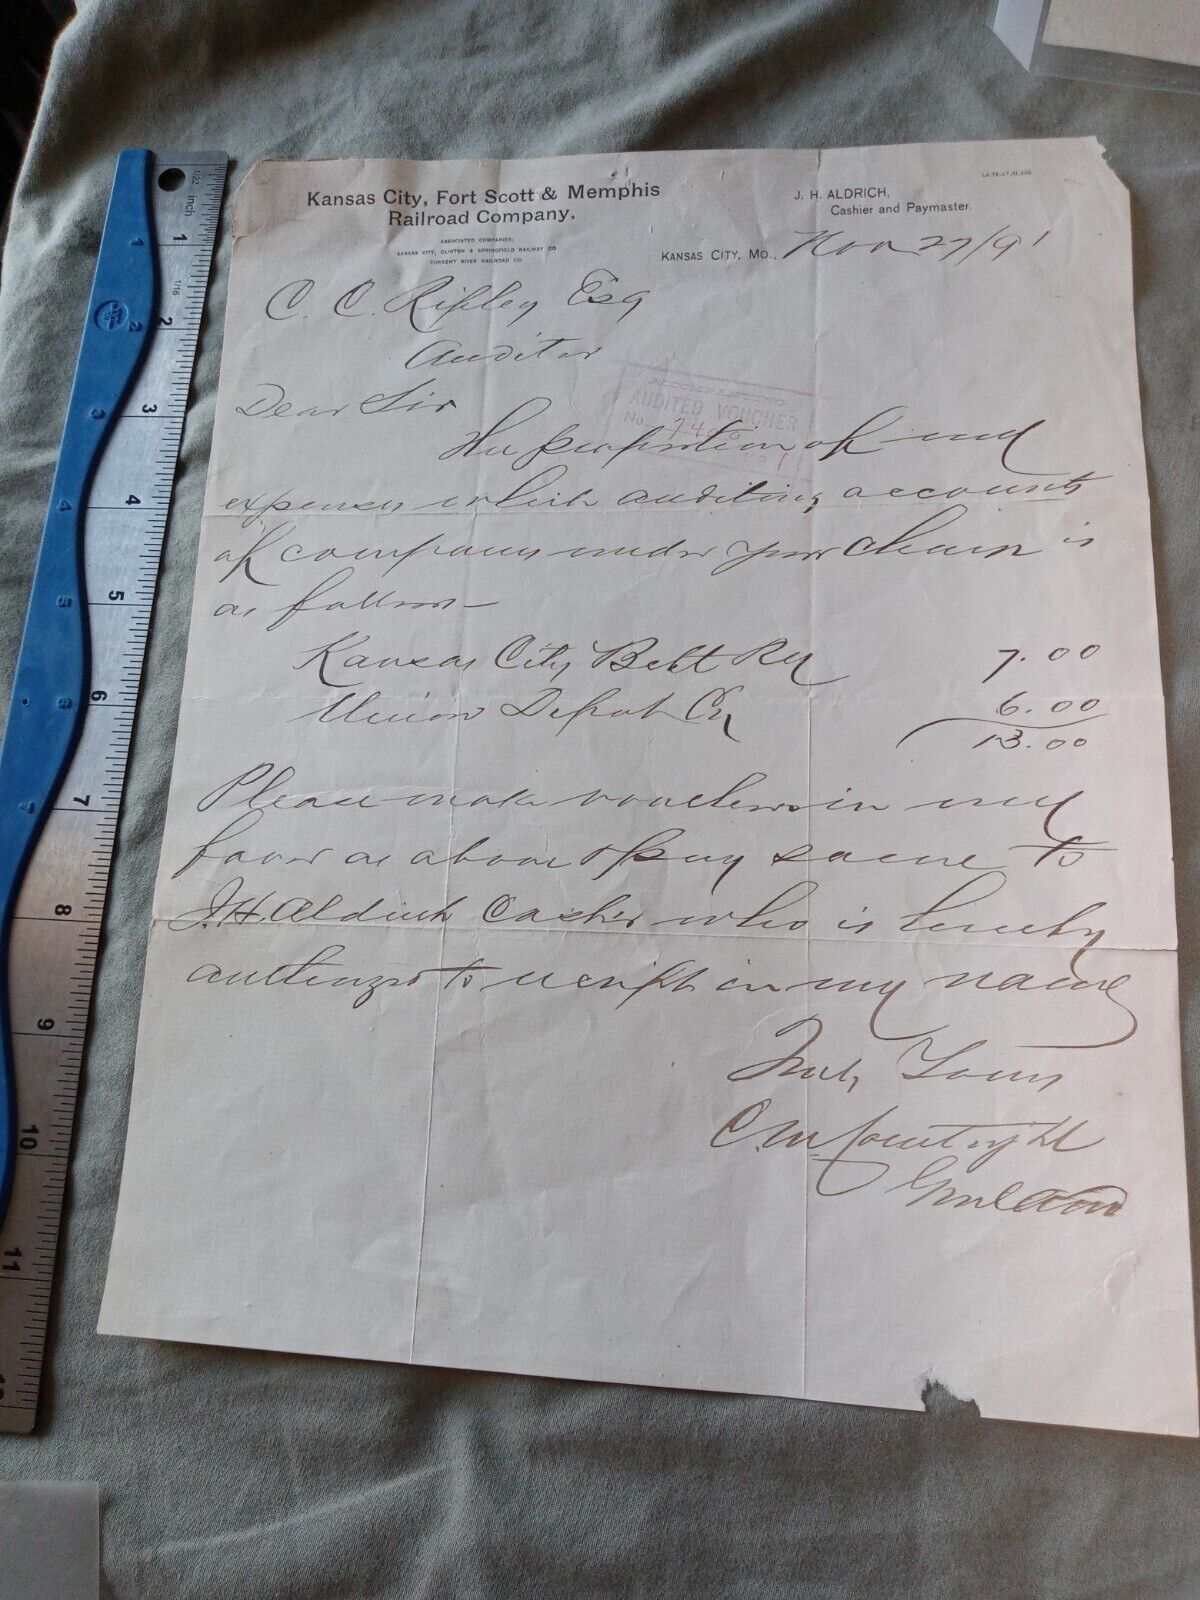 Kansas City, Fort Scott & Memphis
Railroad Company.
ASSOCIATED COMPANIES:
KANSAS CITY, CLINTON & SPRINGFIELD RAILWAY CO
CURRENT RIVER RAILROAD CO.
J. H. ALDRICH,
Cashier and Paymaster.
KANSAS CITY, MO., Nov 27/91
C. C. Ripley Esq
Auditor
Dear Sir
ACCOMPANYING
AUDITED VOUCHER
No.
The proportion of my
expenses while auditing accounts
of company under your charge is
as follows
Kansas City Belt Ry
7.00
Union Depot Co
6.00
13.00
Please make vouchers in my
favor as above & pay same to
J. H. Aldrich Cashier who is hereby
authorized to receipt in my name
Truly Yours
C. M. Courtright
1/32 inch
1/16
1 2 3 4 5 6 7 8 9 10 11
1 2 3 4 5 6 7